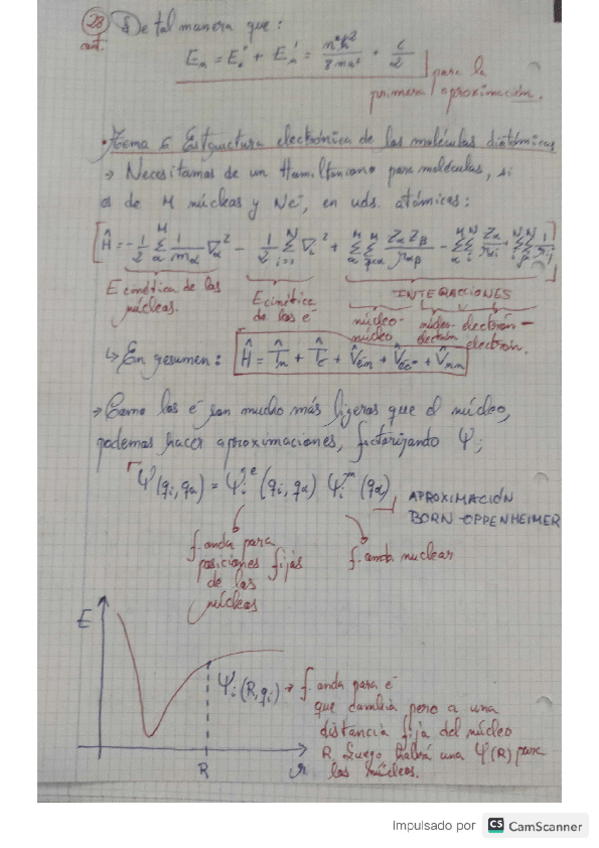 28 De tal manera que:
cont.
E_n = E_n° + E_n' = n²h²/8ma² + c/2
para la
primera aproximación.
• Tema 6 Estructura electrónica de las moléculas diatómicas
→ Necesitamos de un Hamiltoniano para moléculas, si
es de M núcleos y N e⁻, en uds. atómicas:
E cinética de los
núcleos.
E cinética
de los e⁻
INTERACCIONES
núcleo-
núcleo
núcleo-
electrón
electrón-
electrón.
↳ En resumen:
→ Como los e⁻ son mucho más ligeros que el núcleo,
podemos hacer aproximaciones, factorizando Ψ;
Ψ(q_i, q_α) = Ψ_i^e (q_i, q_α) Ψ_i^n (q_α)
APROXIMACIÓN
BORN-OPPENHEIMER
f. onda para
posiciones fijas
de los
núcleos
f. onda nuclear
E
Ψ_i (R, q_i) → f. onda para e⁻
que cambia pero a una
distancia fija del núcleo
R. Luego habrá una Ψ(R) para
los núcleos.
R
r
Impulsado por CS CamScanner